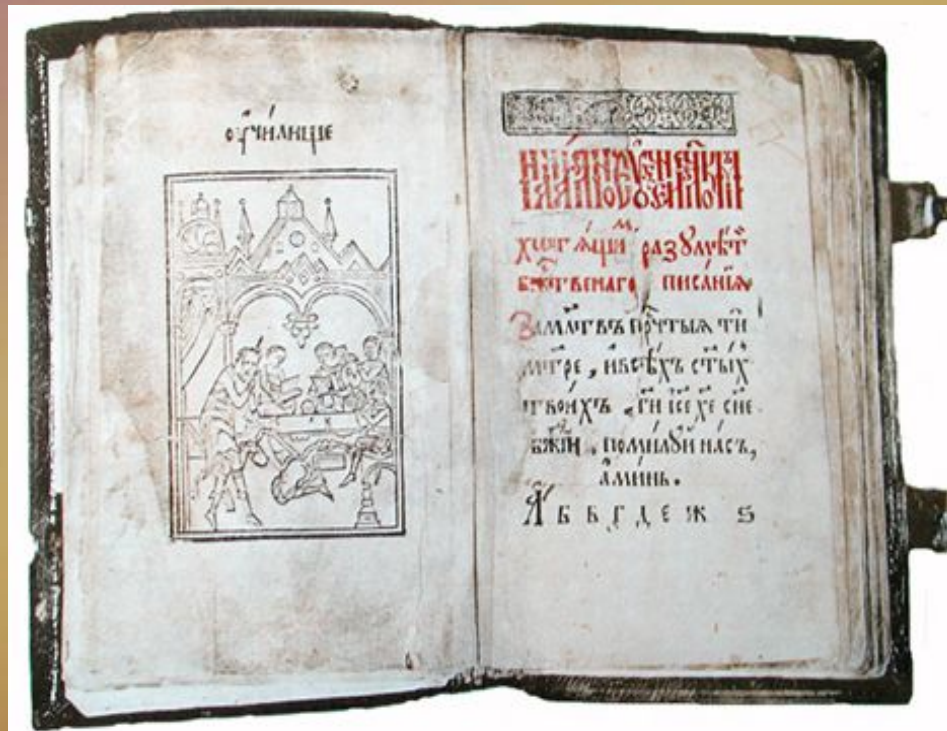 оу҆чи́лище
хотѧ́щиⷨ разꙋмѣ́тⷤ
бж҃твенаго писа́нїѧ
За мл҃твъ прⷱ҇тыѧ ти
мт҃ре , и҆всѣ́хъ ст҃ы́х
твои́хъ . гн҃ і҆се҃ хе҃ сн҃е
бж҃їи , поми́лꙋи на́съ ,
а҆ми́нь .
А҆ б в г д е ж ѕ